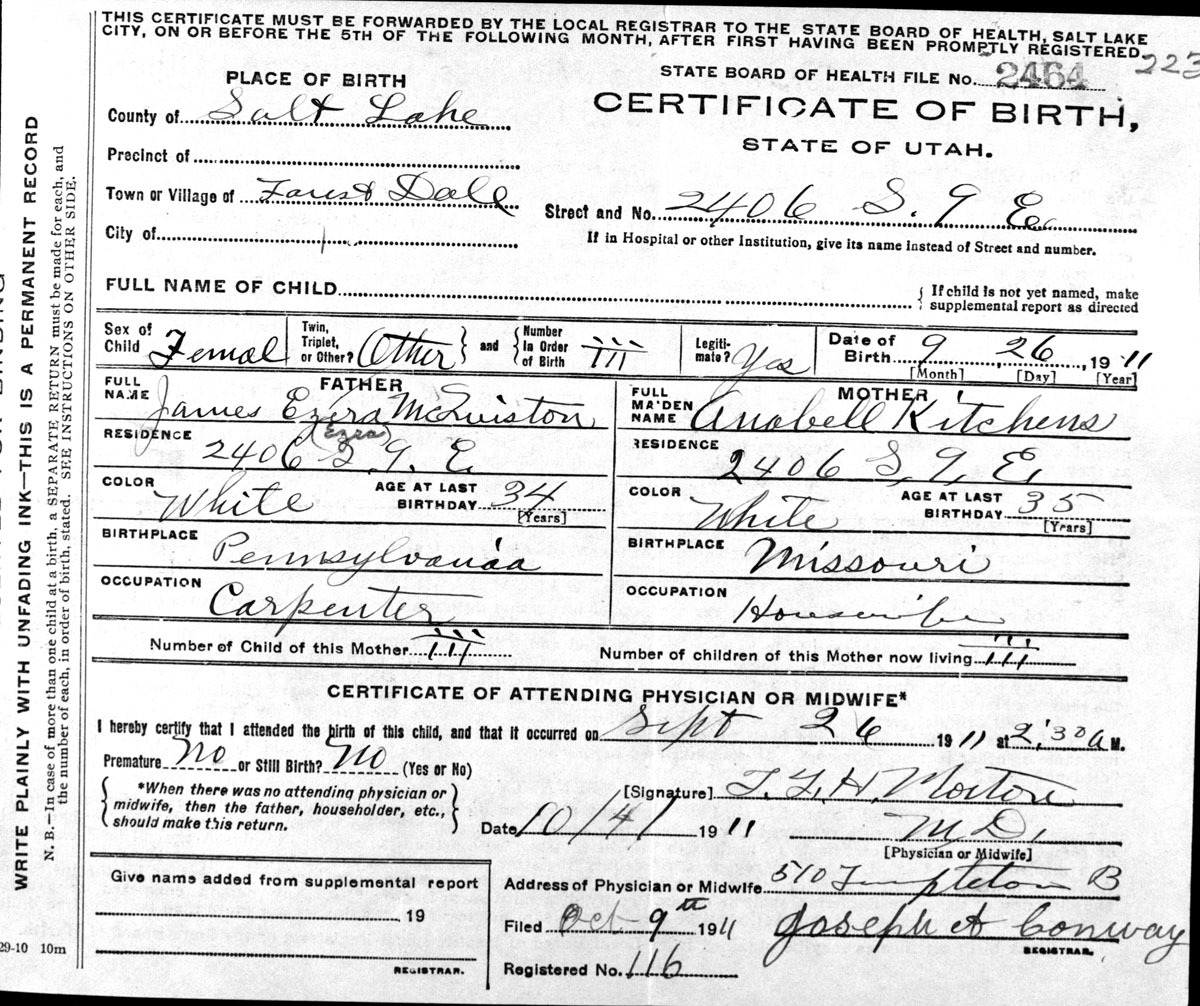 THIS CERTIFICATE MUST BE FORWARDED BY THE LOCAL REGISTRAR TO THE STATE BOARD OF HEALTH, SALT LAKE
CITY, ON OR BEFORE THE 5TH OF THE FOLLOWING MONTH, AFTER FIRST HAVING BEEN PROMPTLY REGISTERED
223
PLACE OF BIRTH
STATE BOARD OF HEALTH FILE No. 2464
County of Salt Lake
CERTIFICATE OF BIRTH,
STATE OF UTAH.
Precinct of
Town or Village of Forest Dale
Street and No. 2406 S. 9 E.
City of
If in Hospital or other Institution, give its name instead of Street and number.
FULL NAME OF CHILD
{ If child is not yet named, make
supplemental report as directed
Sex of Child Femal
Twin, Triplet, or Other? Other } and { Number In Order of Birth III
Legiti-mate? Yes
Date of Birth 9 26, 1911
[Month] [Day] [Year]
FATHER
FULL NAME James Ezra McQuiston
(Ezra)
RESIDENCE 2406 S. 9. E.
COLOR White AGE AT LAST BIRTHDAY 34
[Years]
BIRTHPLACE Pennsylvania
OCCUPATION Carpenter
MOTHER
FULL MAIDEN NAME Anabell Kitchens
RESIDENCE 2406 S, 9, E,
COLOR White AGE AT LAST BIRTHDAY 35
[Years]
BIRTHPLACE Missouri
OCCUPATION Housewife
Number of Child of this Mother III
Number of children of this Mother now living III
CERTIFICATE OF ATTENDING PHYSICIAN OR MIDWIFE*
I hereby certify that I attended the birth of this child, and that it occurred on Sept 26 1911 at 2:30 A M.
Premature No or Still Birth? No (Yes or No)
{ *When there was no attending physician or
midwife, then the father, householder, etc.,
should make this return. }
[Signature] Morton
Date 10/4/ 1911
M.D.
[Physician or Midwife]
Give name added from supplemental report
19
REGISTRAR.
Address of Physician or Midwife 510 Templeton B
Filed Oct 9th 1911 Joseph A Conway
REGISTRAR.
Registered No. 116
29-10 10m
WRITE PLAINLY WITH UNFADING INK—THIS IS A PERMANENT RECORD
N. B.—In case of more than one child at a birth, a SEPARATE RETURN must be made for each, and
the number of each, in order of birth, stated. SEE INSTRUCTIONS ON OTHER SIDE.